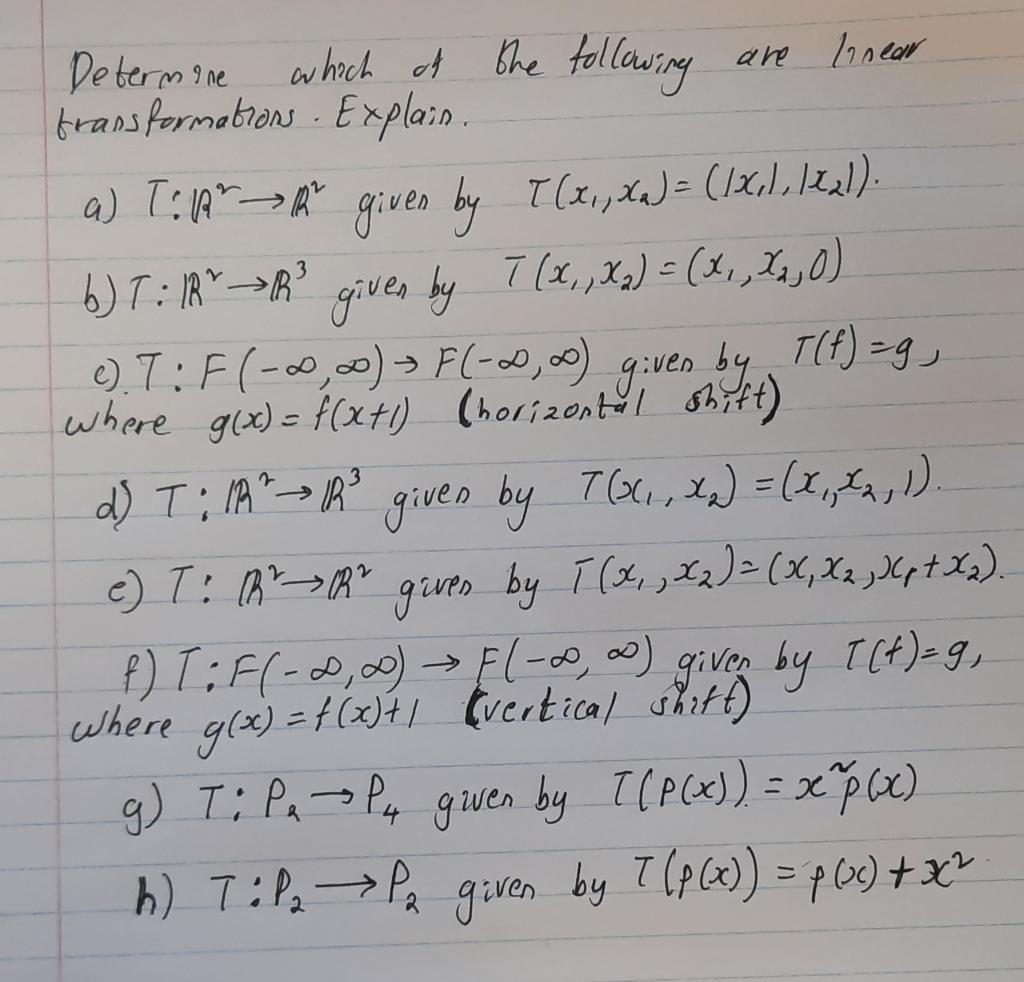 Determine which of the following are linear
transformations. Explain.
a) T: ℝ² → ℝ² given by T(x₁, x₂) = (|x₁|, |x₂|).
b) T: ℝ² → ℝ³ given by T(x₁, x₂) = (x₁, x₂, 0)
c) T: F(-∞, ∞) → F(-∞, ∞) given by T(f) = g,
where g(x) = f(x+1) (horizontal shift)
d) T: ℝ² → ℝ³ given by T(x₁, x₂) = (x₁, x₂, 1).
e) T: ℝ² → ℝ² given by T(x₁, x₂) = (x₁x₂, x₁ + x₂).
f) T: F(-∞, ∞) → F(-∞, ∞) given by T(f) = g,
where g(x) = f(x)+1 (vertical shift)
g) T: P₂ → P₄ given by T(p(x)) = x²p(x)
h) T: P₂ → P₂ given by T(p(x)) = p(x) + x²